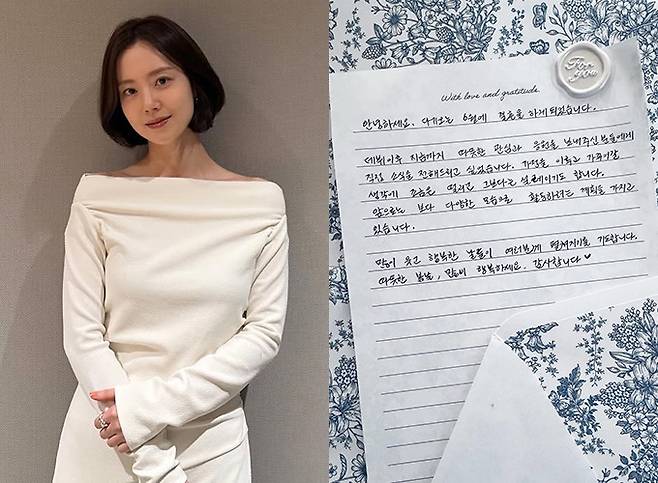 For you
With love and gratitude.
안녕하세요. 다가오는 6월에 결혼을 하게 되었습니다.
데뷔이후 지금까지 따뜻한 관심과 응원을 보내주신 분들에게
직접 소식을 전해드리고 싶었습니다. 가정을 이루고 가꾸어갈
생각에 조금은 떨리고 그보다 더 설레이기도 합니다.
앞으로는 보다 다양한 모습으로 활동하려는 계획을 가지고
있습니다.
많이 웃고 행복한 날들이 여러분께 펼쳐지기를 기도합니다.
따뜻한 봄날, 많이 행복하세요. 감사합니다 ♥